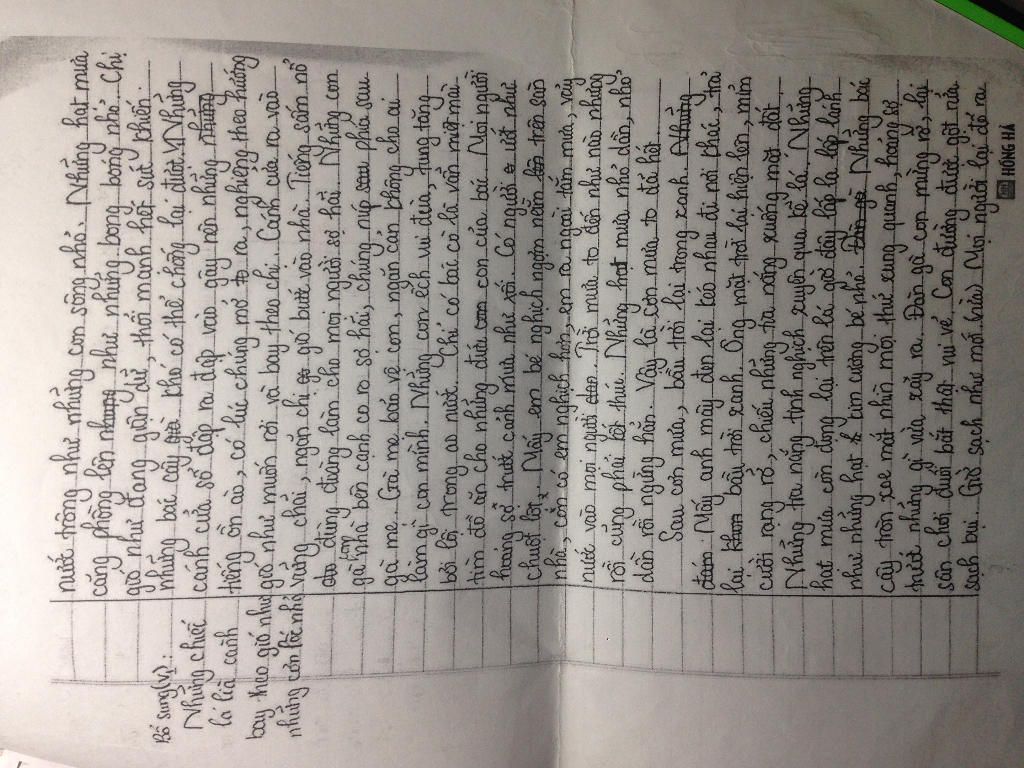 nước trông như những con sông nhỏ. Những hạt mưa
căng phồng lên như những bong bóng nhỏ. Chị
gió như đang giận dữ, thổi mạnh hết sức khiến
những bác cây khó có thể chống lại được. V1 Những
cánh cửa sổ đập ra đập vào gây nên những
tiếng ồn ào, có lúc chúng mở ra, nghiêng theo hướng
gió như muốn rời và bay theo chị. Cánh cửa ra vào
vững chãi, ngăn chị gió bước vào nhà. Tiếng sấm nổ
đùng đùng làm cho mọi người sợ hãi. Những con
gà con nhà bên cạnh co ro sợ hãi, chúng núp phía sau
gà mẹ. Gà mẹ bảo vệ con, ngăn cản không cho ai
làm gì con mình. Những con ếch vui đùa, tung tăng
bơi lội trong ao nước. Chỉ có bác cò là vẫn miệt mài
tìm đồ ăn cho những đứa con của bác. Mọi người
hoảng sợ trước cảnh mưa như xối. Có người ướt như
chuột lột. Mấy em bé nghịch ngợm nằm trên sàn
nhà, còn có em nghịch hơn, em ra ngoài tắm mưa, vẩy
nước vào mọi người. Trời mưa to đến như nào nhưng
rồi cũng phải kết thúc. Những hạt mưa nhỏ dần, nhỏ
dần rồi ngừng hẳn. Vậy là cơn mưa to đã hết.
Sau cơn mưa, bầu trời lại trong xanh.
Mấy anh mây đen lại kéo nhau đi nơi khác, trả
lại bầu trời xanh. Ông mặt trời lại hiện lên, mỉm
cười rạng rỡ, chiếu những tia nắng xuống mặt đất.
Những tia nắng tinh nghịch xuyên qua kẽ lá. Những
hạt mưa còn đọng lại trên lá giờ đây lấp la lấp lánh
như những hạt kim cương bé nhỏ. Những bác
cây tròn xoe mắt nhìn mọi thứ xung quanh, hoảng hốt
trước những gì vừa xảy ra. Đàn gà con mừng rỡ, lại
sân chơi đuổi bắt thật vui vẻ. Con đường được gột rửa
sạch bụi. Giờ sạch như mới (kìa). Mọi người lại đổ ra
Bổ sung (V1):
Những chiếc
lá lìa cành
bay theo gió như
những cơn lốc nhỏ
HỒNG HÀ